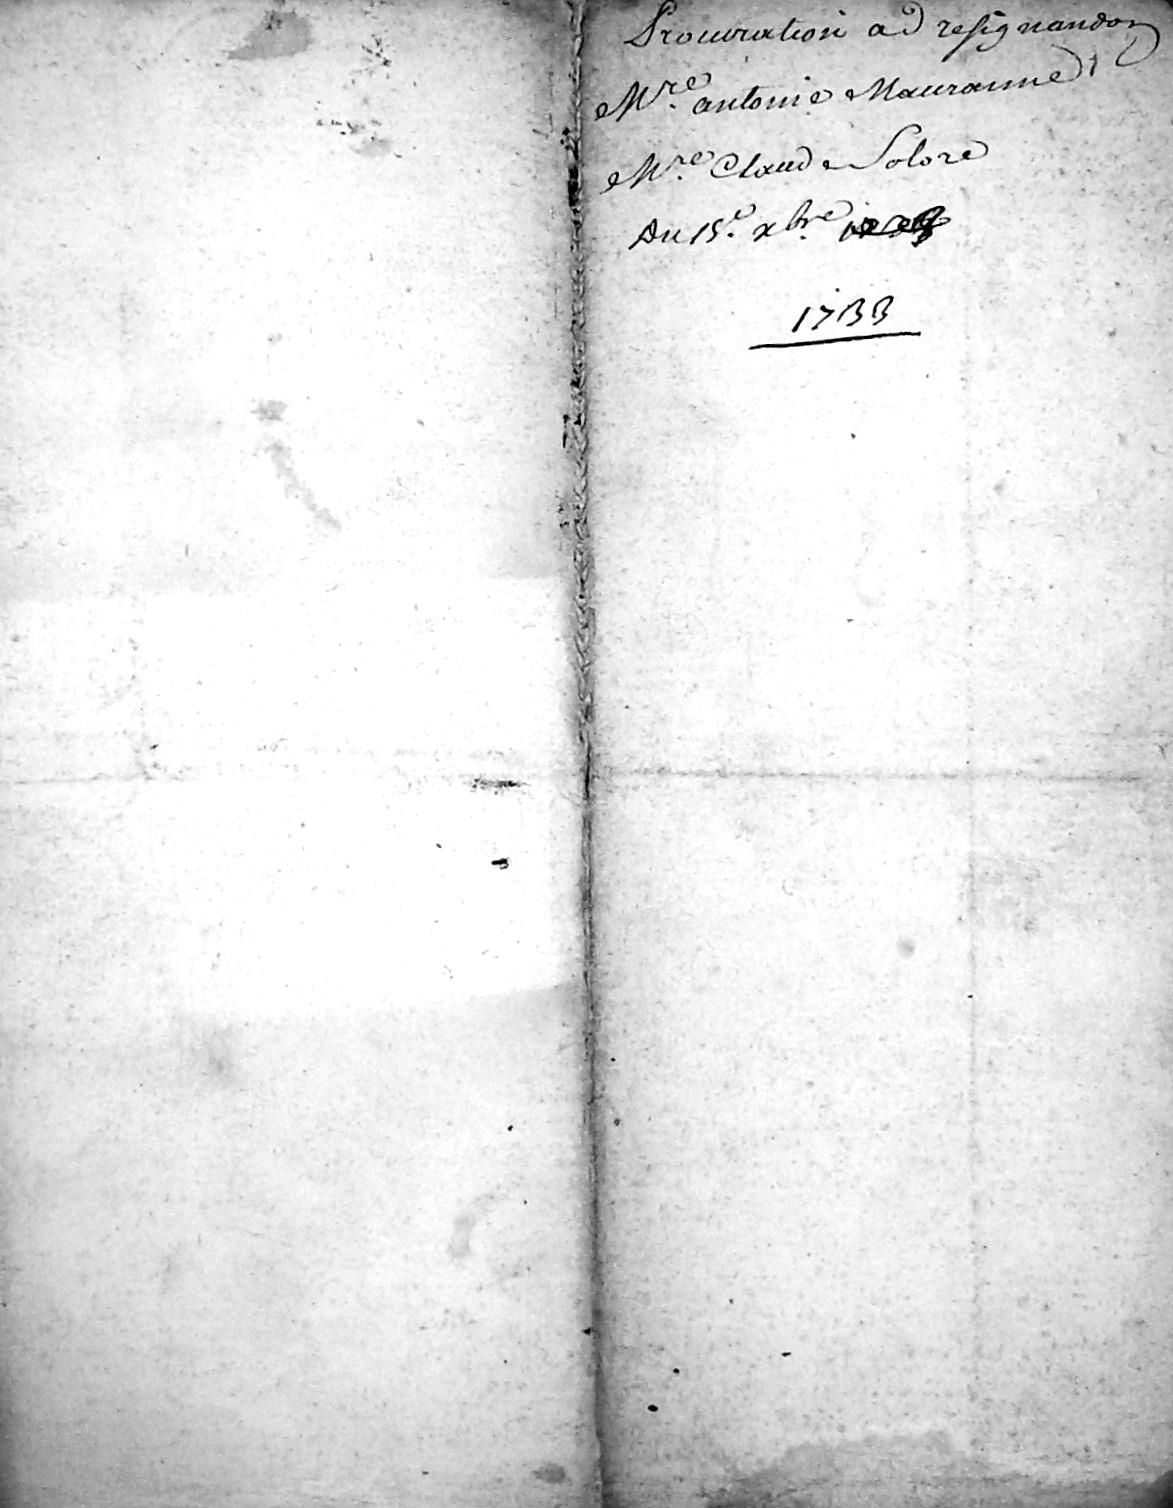 Procuration ad resignandon
Mre. antoine Mauranne
Mre. Claude Solore
Du 15e. xbre
1733